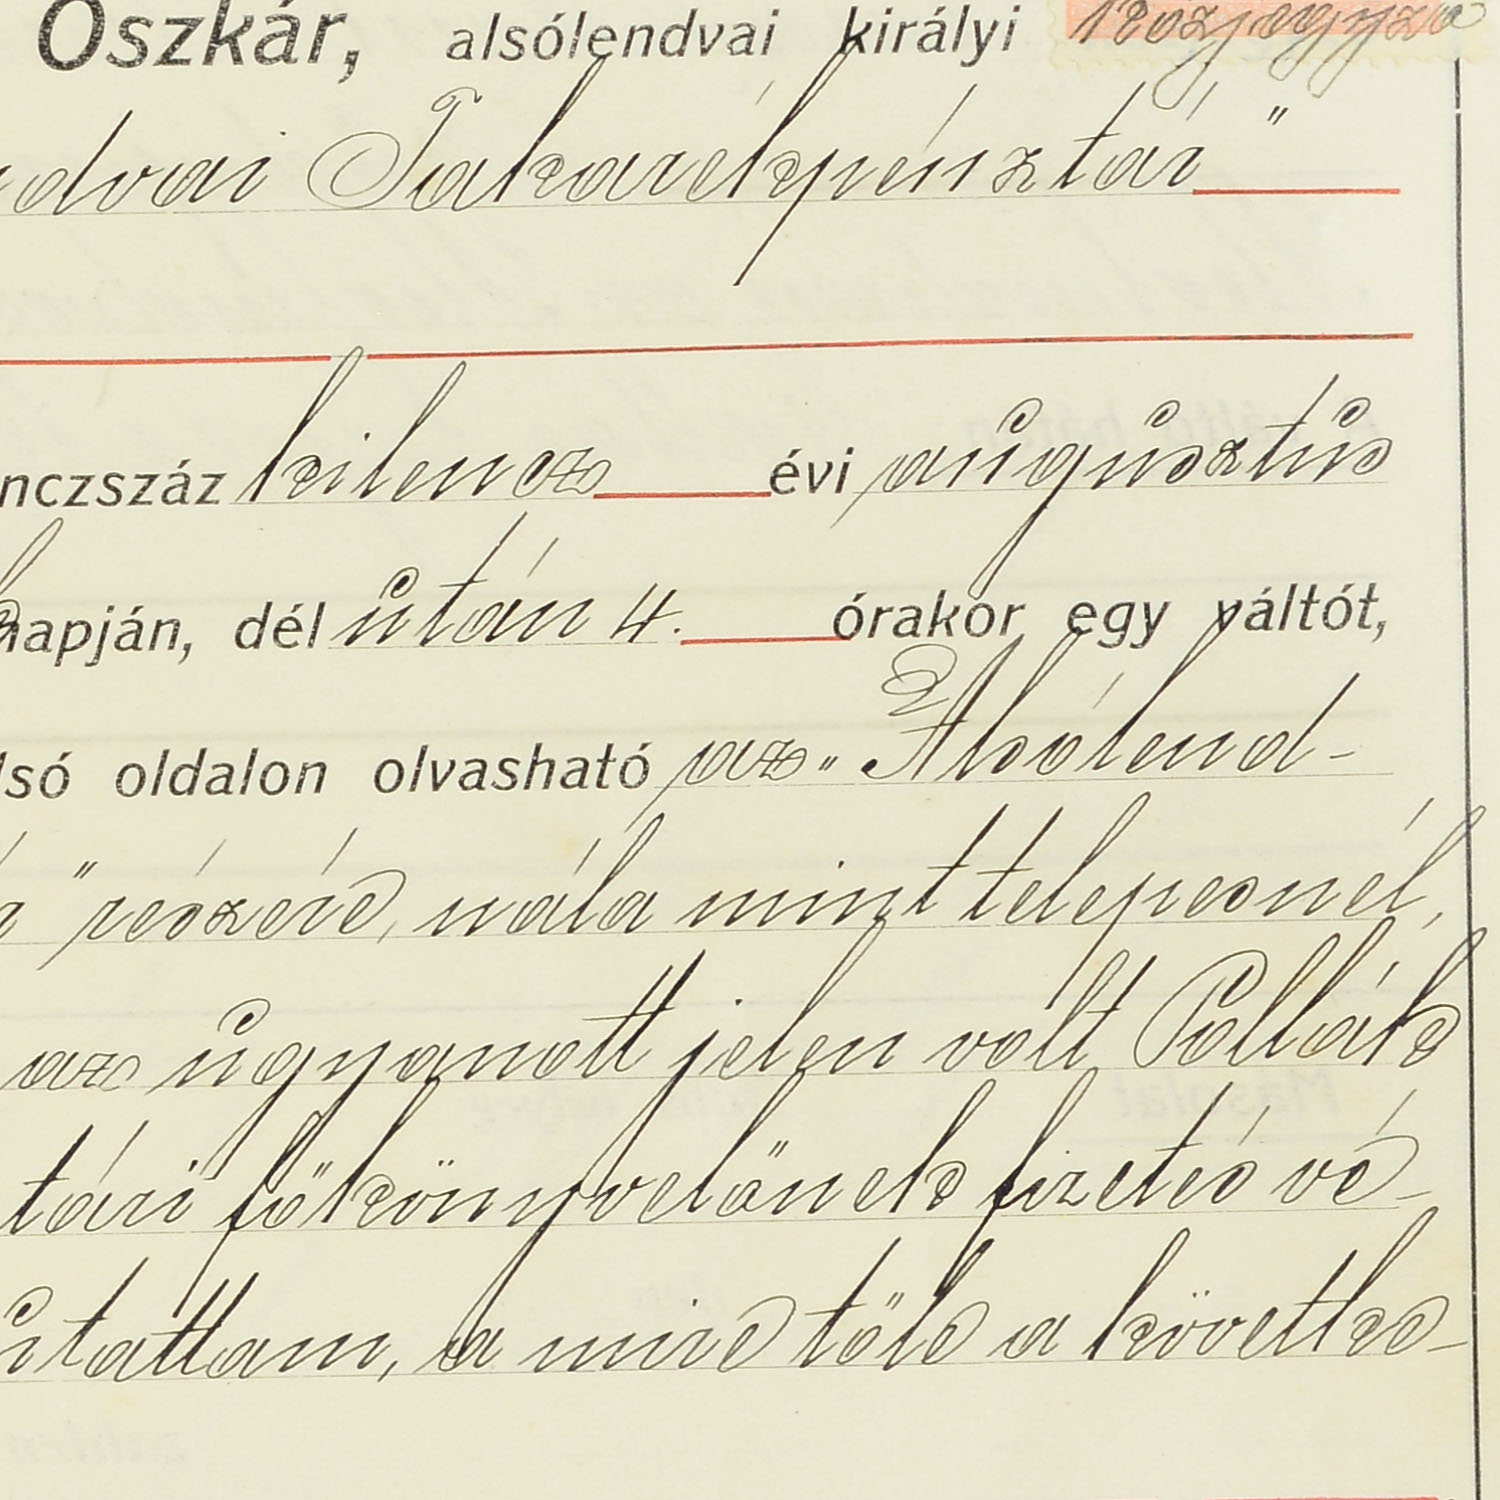 Oszkár, alsólendvai királyi közjegyző
ndvai Takarékpénztár"
nczszáz kilencz évi augusztus
napján, dél után 4. órakor egy váltót,
lsó oldalon olvasható az „Alsólend-
r" részére, nála mint telepesnél,
az ugyanott jelen volt Pollák
tári főkönyvelőnek fizetés vé-
utattam, a mire tőle a követke-